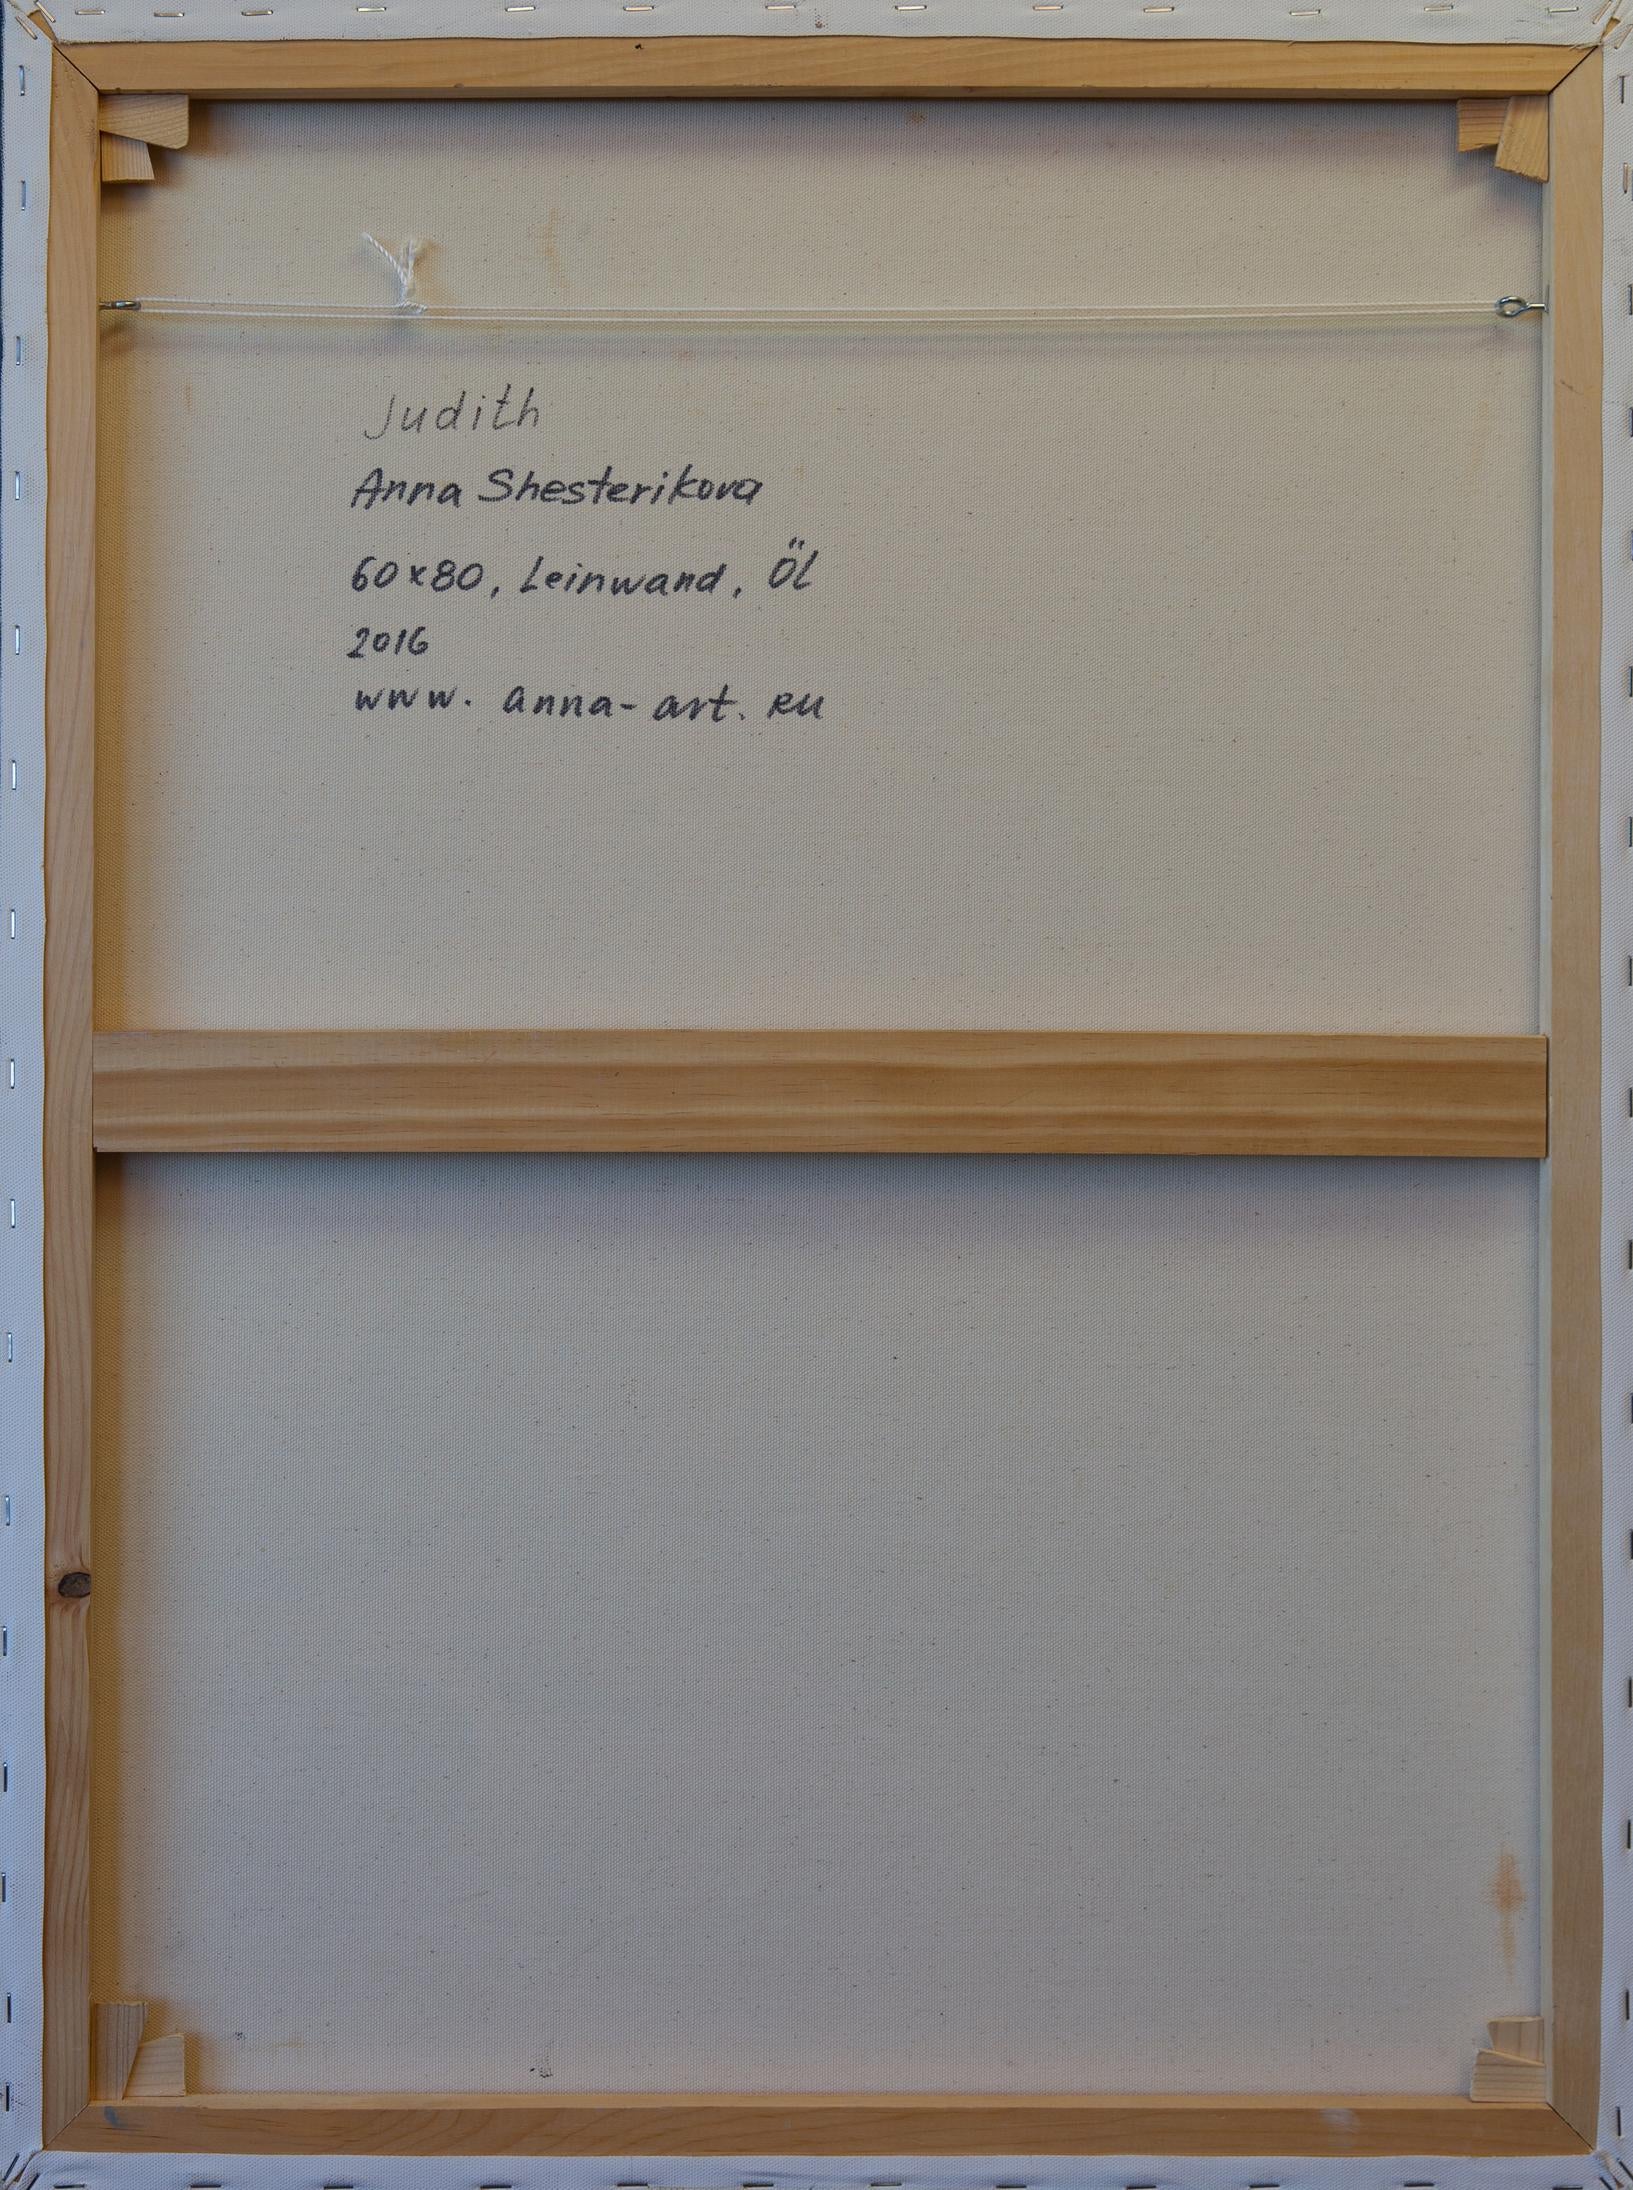 Judith
Anna Shesterikova
60x80, Leinwand, Öl
2016
www. anna-art. ru